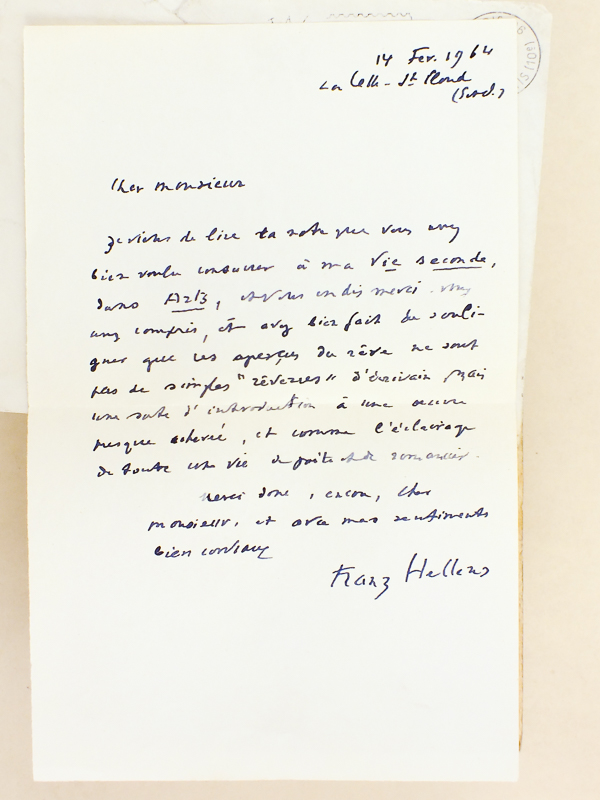 14 Fev. 1964
La Celle-St Cloud
(S et O.)
Cher monsieur
Je viens de lire la note que vous avez
bien voulu consacrer à ma Vie seconde,
dans Arts, et vous en dis merci. Vous
avez compris, et avez bien fait de souli-
gner que ces aperçus du rêve ne sont
pas de simples "rêveries" d'écrivain mais
une sorte d'introduction à une œuvre
presque achevée, et comme l'éclairage
de toute une vie de poète et de romancier.
Merci donc, encore, cher
monsieur, et avec mes sentiments
bien cordiaux
Franz Hellens